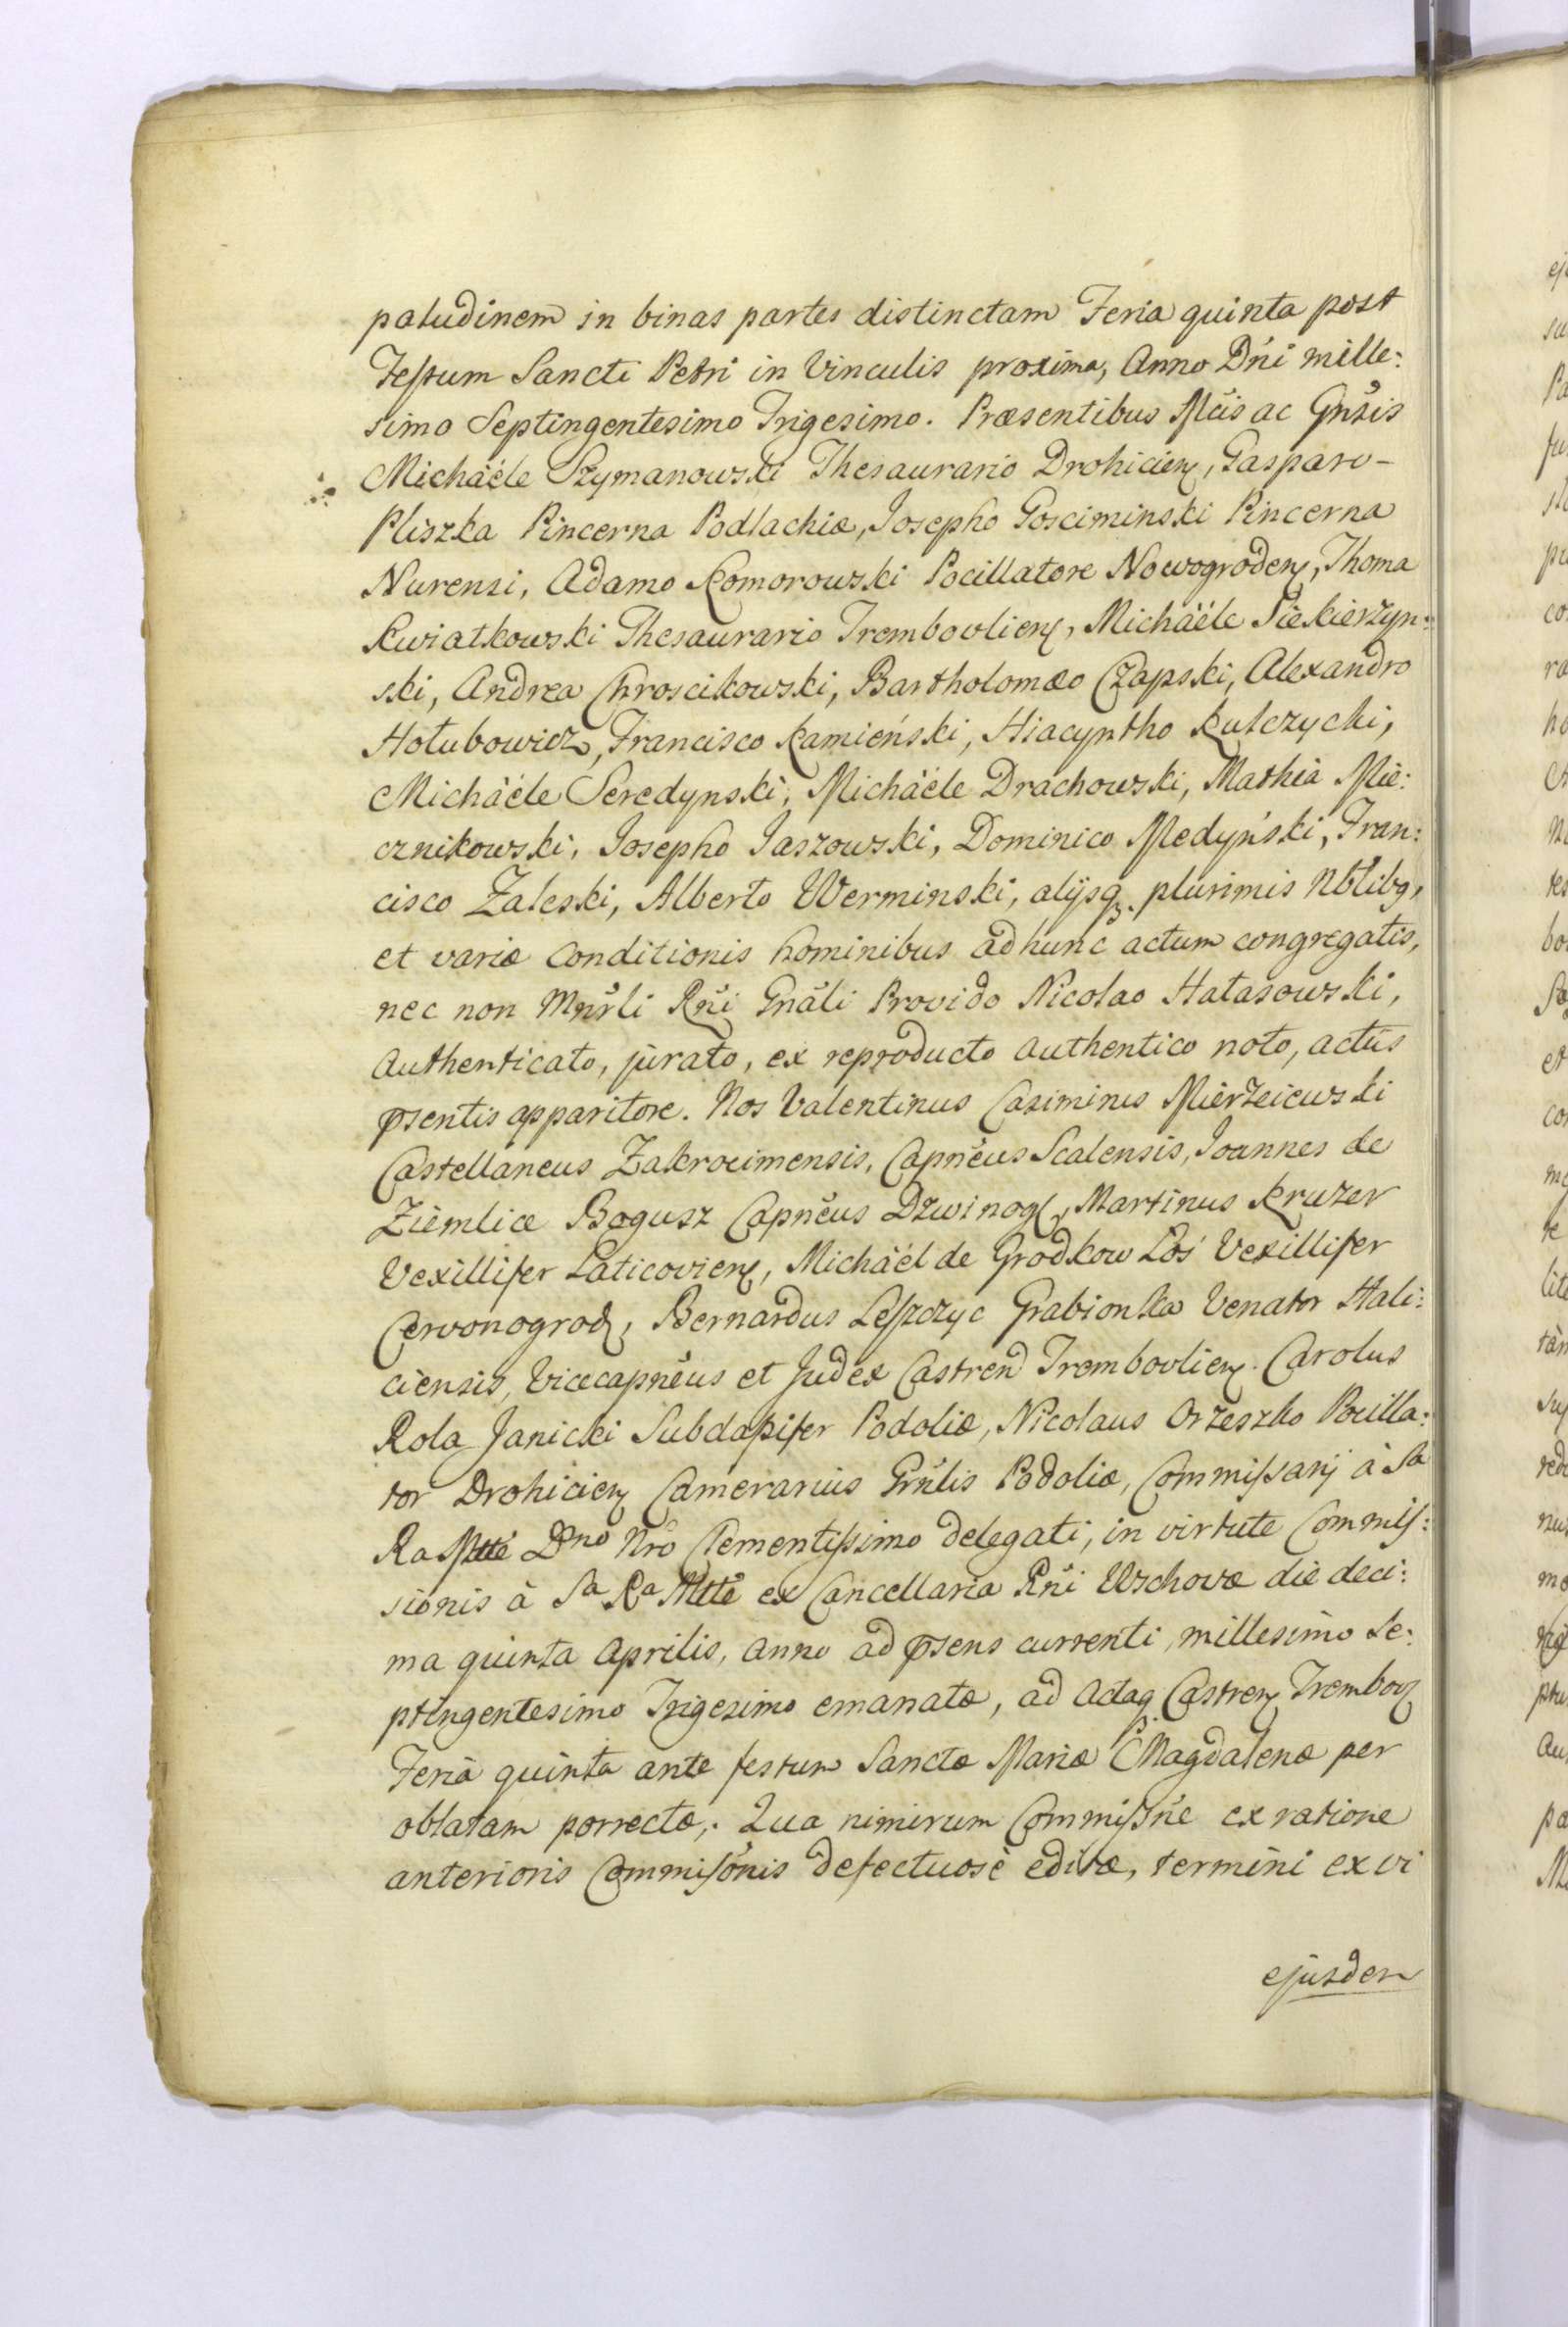 paludinem in binas partes distinctam Feria quinta post
Festum Sancti Petri in Vinculis proxima, Anno Dñi mille:
simo Septingentesimo Trigesimo. Præsentibus Mcis ac Gnsis
Michaële Szymanowski Thesaurario Drohicien, Gasparo-
Pliszka Pincerna Podlachiæ, Josepho Gosciminski Pincerna
Nurensi, Adamo Komorowski Pocillatore Nowogroden, Thoma
Kwiatkowski Thesaurario Trembovlien, Michaële Siekierzyn:
ski, Andrea Chroscikowski, Bartholomæo Czapski, Alexandro
Hołubowicz, Francisco Kamieński, Hiacyntho Kulczycki,
Michaële Seredynski, Michaële Drachowski, Mathia Mie:
cznikowski, Josepho Jaszowski, Dominico Medyński, Fran:
cisco Zaleski, Alberto Werminski, alijsq. plurimis Nbtibq,
et variæ Conditionis hominibus ad hunc actum congregatis,
nec non Mnrli Rni Gnali Provido Nicolao Hałasowski,
Authenticato, jurato, ex reproducto authentico noto, actus
psentis apparitore. Nos Valentinus Casimirus Mierzeiewski
Castellaneus Zakrocimensis, Capneus Scalensis, Joannes de
Ziemlice Bogusz Capneus Dzwinog, Martinus Kruzer
Vexillifer Laticovien, Michaël de Grodkow Łoś Vexillifer
Cervonogrod, Bernardus Leszczyc Grabionka Venator Hali:
ciensis, Vicecapneus et Judex Castren Trembovlien. Carolus
Rola Janicki Subdapifer Podoliæ, Nicolaus Orzeszko Pocilla:
tor Drohicien Camerarius Grnlis Podoliæ, Commissarij à Sa
Ra Mtte Dno Nro Clementissimo delegati, in virtute Commis:
sionis à Sa Ra Mtte ex Cancellaria Rni Wschovæ die deci:
ma quinta Aprilis, anno ad psens currenti, millesimo Se:
ptingentesimo Trigesimo emanatæ, ad Actaq Castren Trembov
Feria quinta ante festum Sanctæ Mariæ Magdalenæ per
oblatam porrectæ,. Qua nimirum Commissne ex ratione
anterioris Commisonis defectuosè editæ, termini ex vi
ejusdem